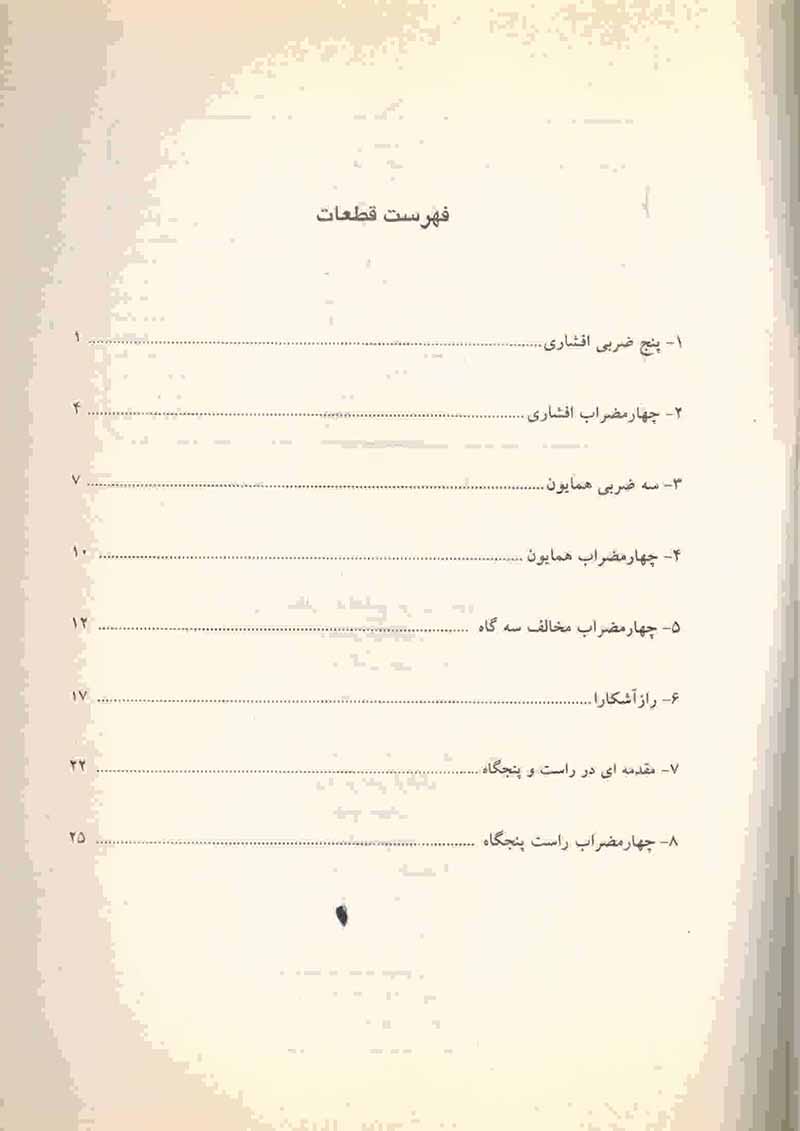 فهرست قطعات
۱- پنج ضربی افشاری ........ ۱
۲- چهارمضراب افشاری ........ ۴
۳- سه ضربی همایون ........ ۷
۴- چهارمضراب همایون ........ ۱۰
۵- چهارمضراب مخالف سه گاه ........ ۱۲
۶- رازآشکارا ........ ۱۷
۷- مقدمه ای در راست و پنجگاه ........ ۲۲
۸- چهارمضراب راست پنجگاه ........ ۲۵